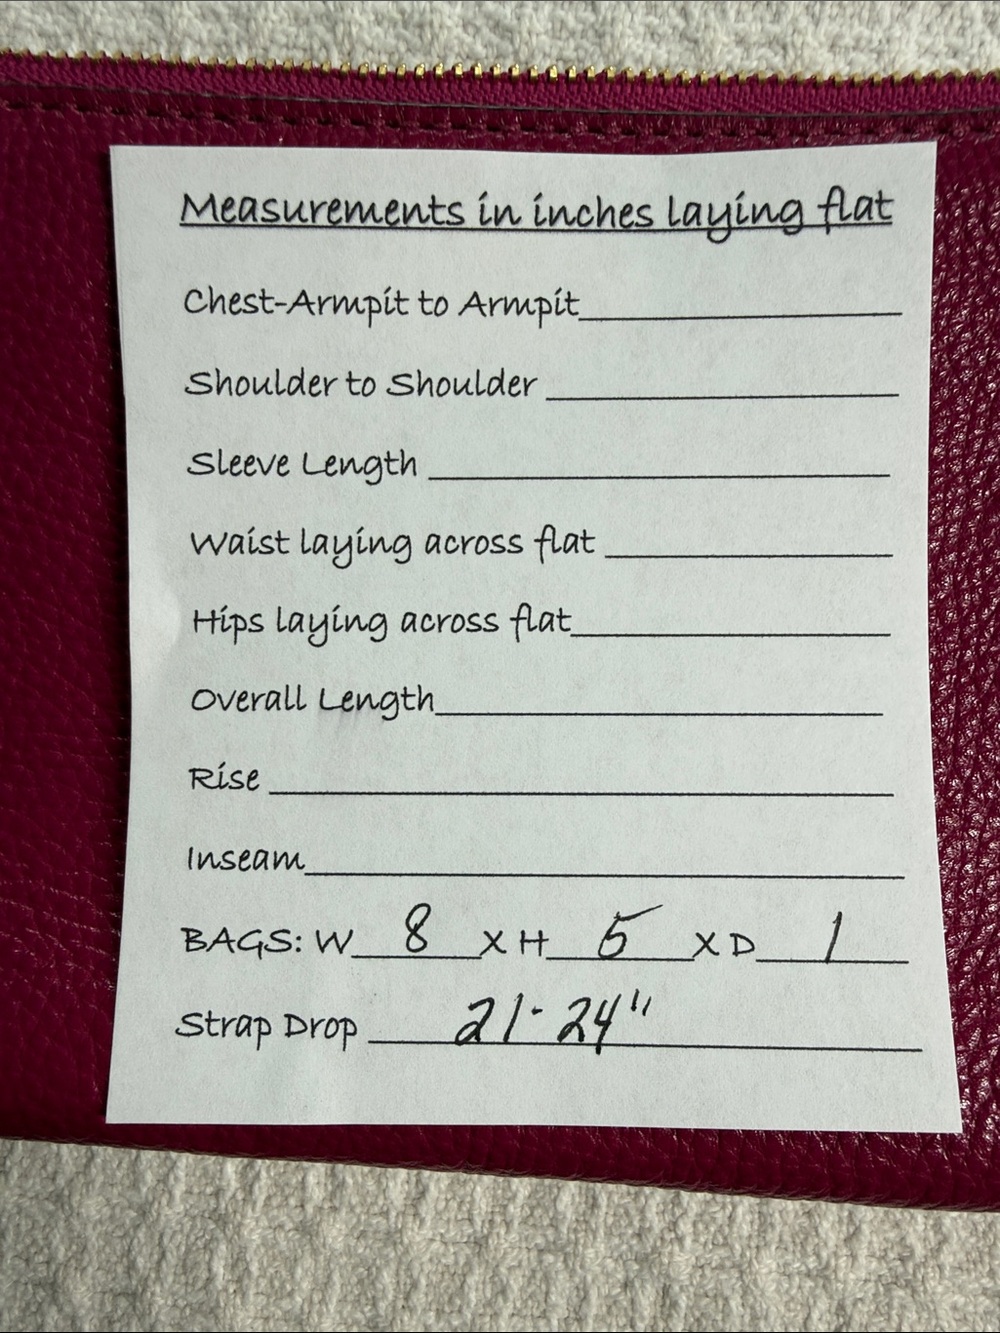 Measurements in inches laying flat
Chest-Armpit to Armpit
Shoulder to Shoulder
Sleeve Length
Waist laying across flat
Hips laying across flat
Overall Length
Rise
Inseam
BAGS: W 8 X H 5 X D 1
Strap Drop 21-24"